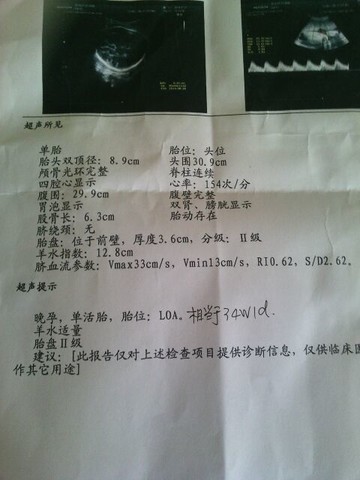 超声所见
单胎 胎位: 头位
胎头双顶径: 8.9cm 头围30.9cm
颅骨光环完整 脊柱连续
四腔心显示 心率: 154次/分
腹围: 29.9cm 腹壁完整
胃泡显示 双肾、膀胱显示
股骨长: 6.3cm 胎动存在
脐绕颈: 无
胎盘: 位于前壁, 厚度3.6cm, 分级: Ⅱ级
羊水指数: 12.8cm
脐血流参数: Vmax33cm/s, Vmin13cm/s, RI0.62, S/D2.62,
超声提示
晚孕, 单活胎, 胎位: LOA。相当于34W1d.
羊水适量
胎盘Ⅱ级
建议: [此报告仅对上述检查项目提供诊断信息, 仅供临床医
作其它用途]